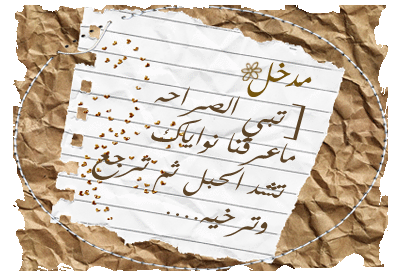 مدخل
[ تبي الصراحه
ماعرفنا نواياك
تشد الحبل ثم ترجع
وترخيه....